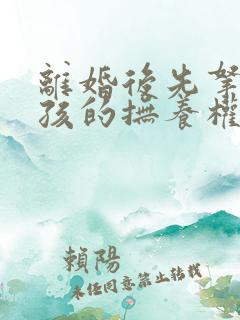 離婚後先拏
孩的撫養權
賴陽
未任同意禁止轉載